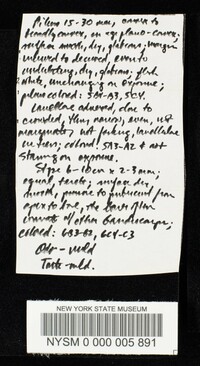 Pileus 15-30 mm, convex to
broadly convex, in age plano-convex,
surface smooth, dry, glabrous, margin
incurved to decurved, even to
undulating, dry, glabrous. flesh
white, unchanging on exposure;
pileus colored: 5A4-A3, 5C4.
Lamellae adnexed, close to
crowded, thin, narrow, even, not
marginate, not forking, lamellulae
in tiers; colored: 5A3-A2 & not
staining on exposure.
Stipe 6-10 cm x 2-3 mm;
equal, terete; surface dry,
smooth, from
apex to base, the
of other
colored: 6C4-C3
Odor - mild
Taste - mild.
NEW YORK STATE MUSEUM
NYSM 0 000 005 891